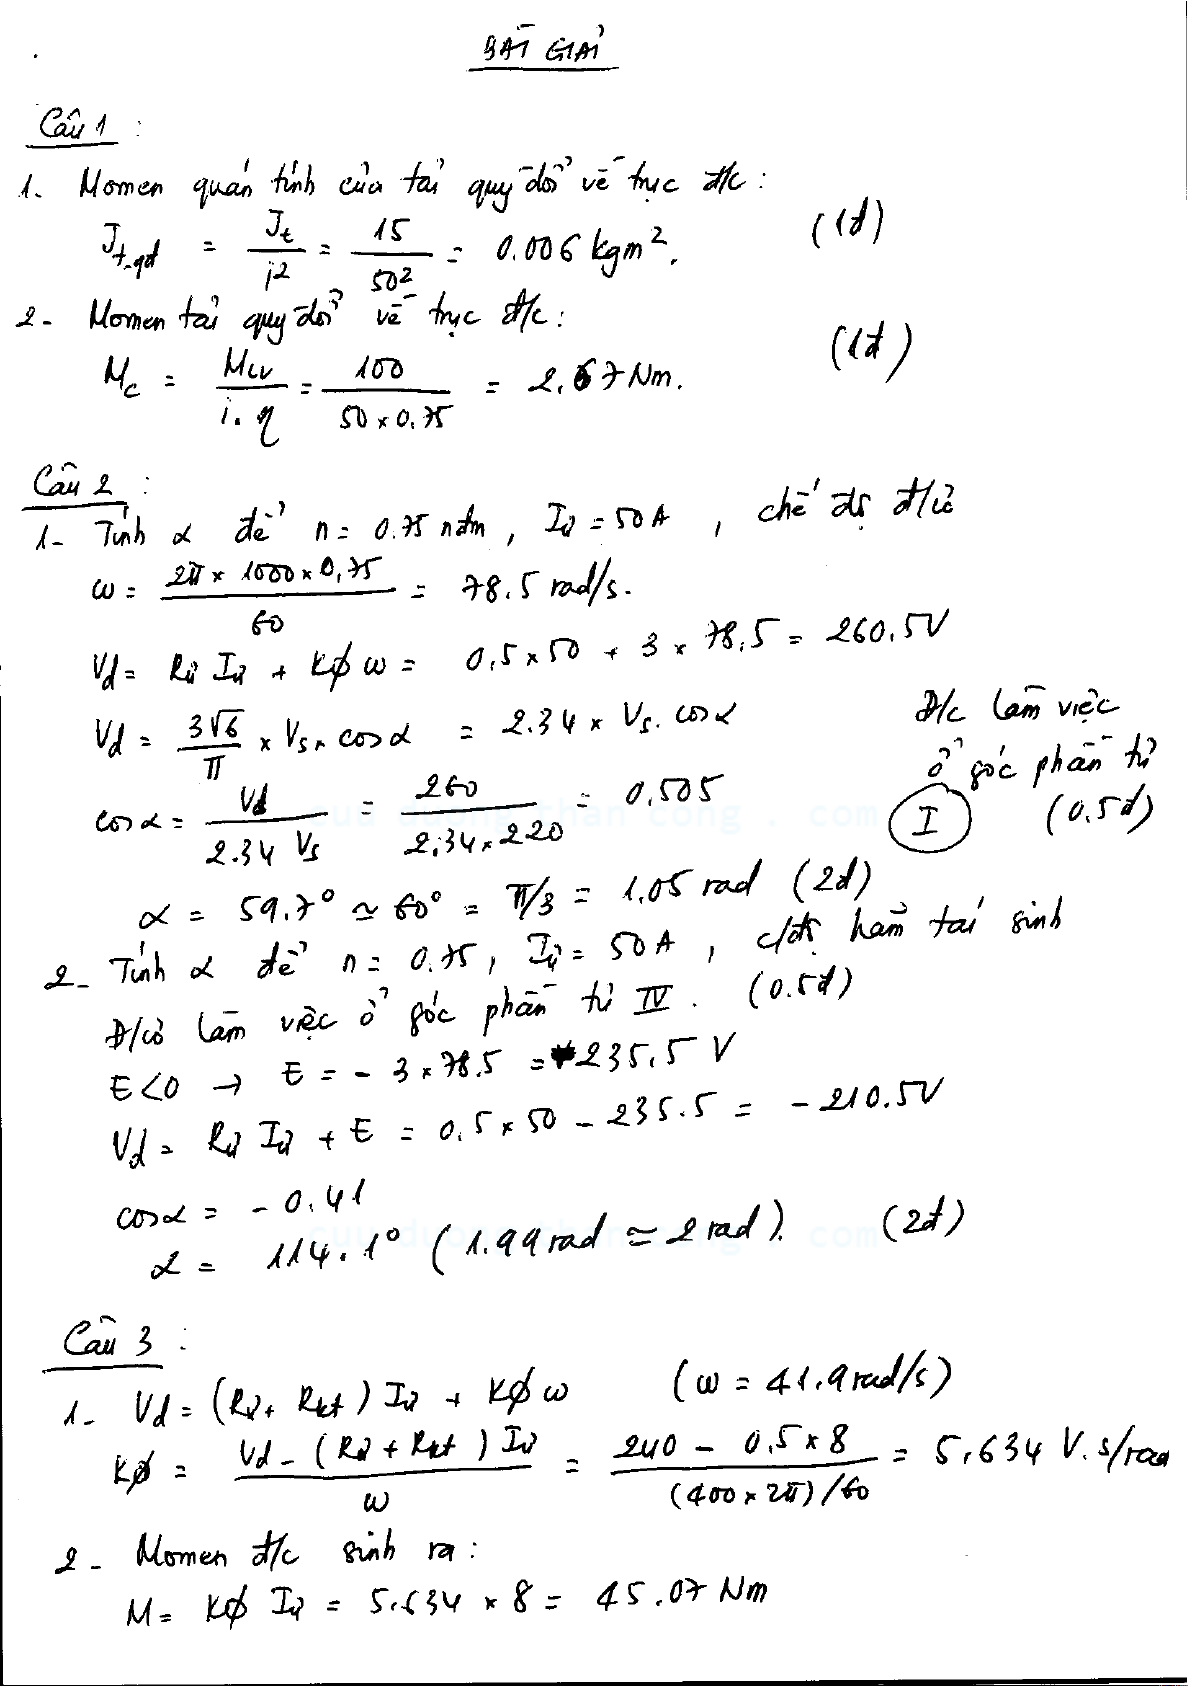 BÀI GIẢI
Câu 1 :
1. Momen quán tính của tải quy đổi về trục đ/c :
J_t_qđ = J_t / i² = 15 / 50² = 0.006 kgm². (1đ)
2- Momen tải quy đổi về trục đ/c :
M_c = M_lv / i.η = 100 / 50 x 0.75 = 2.67 Nm. (1đ)
Câu 2 :
1- Tính α để n = 0.75 nđm , Iư = 50A , chế độ đ/cơ
ω = 2π x 1000 x 0,75 / 60 = 78.5 rad/s.
Vd = Rư Iư + KØ ω = 0,5 x 50 + 3 x 78,5 = 260,5V
Vd = 3√6 / π x Vs x cos α = 2.34 x Vs. cos α
Đ/c làm việc
ở góc phần tư
I (0.5đ)
cos α = Vd / 2.34 Vs = 260 / 2,34 x 220 = 0,505
α = 59.7° ≃ 60° = π/3 = 1.05 rad (2đ)
2- Tính α để n = 0.75, Iư = 50A , c/độ hãm tái sinh
Đ/cơ làm việc ở góc phần tư IV . (0.5đ)
E<0 → E = - 3 x 78.5 = -235,5 V
Vd = Rư Iư + E = 0,5 x 50 - 235.5 = - 210.5V
cos α = - 0,41
α = 114.1° (1.99 rad ≃ 2 rad). (2đ)
Câu 3 :
1- Vd = (Rư + Rkt ) Iư + KØ ω (ω = 41.9 rad/s)
KØ = Vd - (Rư + Rkt ) Iư / ω = 240 - 0,5 x 8 / (400 x 2π) / 60 = 5,634 V.s/rad
2- Momen đ/c sinh ra :
M = KØ Iư = 5,634 x 8 = 45.07 Nm
cuu duong than cong . com
cuu duong than cong . com